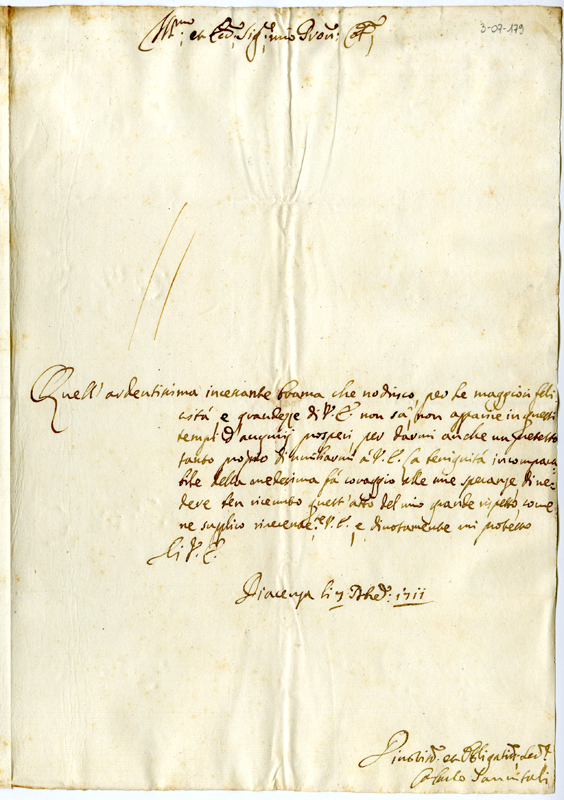 3-07-179
Ill.mo et Ecc.mo Sig.re mio Pron. Col.
Quell' ardentissima incessante brama che nodrisco, per le maggiori feli
cità, e grandezze di V. E. non sà non apparire in questi
tempi d'augurij prosperi, per darmi anche un
tanto proprio d'umiliarmi à V. E. La benignità incompara
bile della medesima fà coraggio alle mie speranze di ve
dere ben ricevuto quest'atto del mio grande rispetto come
ne supplico riverente. V. E., e divotamente mi protesto
Di V. E.
Piacenza li 1711
et Obligatis.
Sanvitali